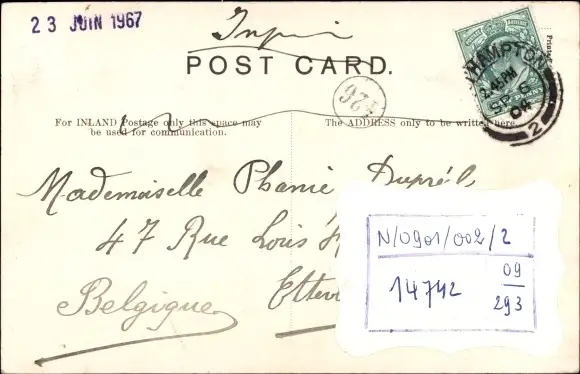 23 JUIN 1967
POST CARD.
Printed
HAMPTON
2.45 PM
04
2
HALFPENNY
926
For INLAND Postage only this space may
be used for communication.
The ADDRESS only to be written here.
Mademoiselle Phanie
47 Rue Louis
Belgique
N/0901/002/2
14742
09
293